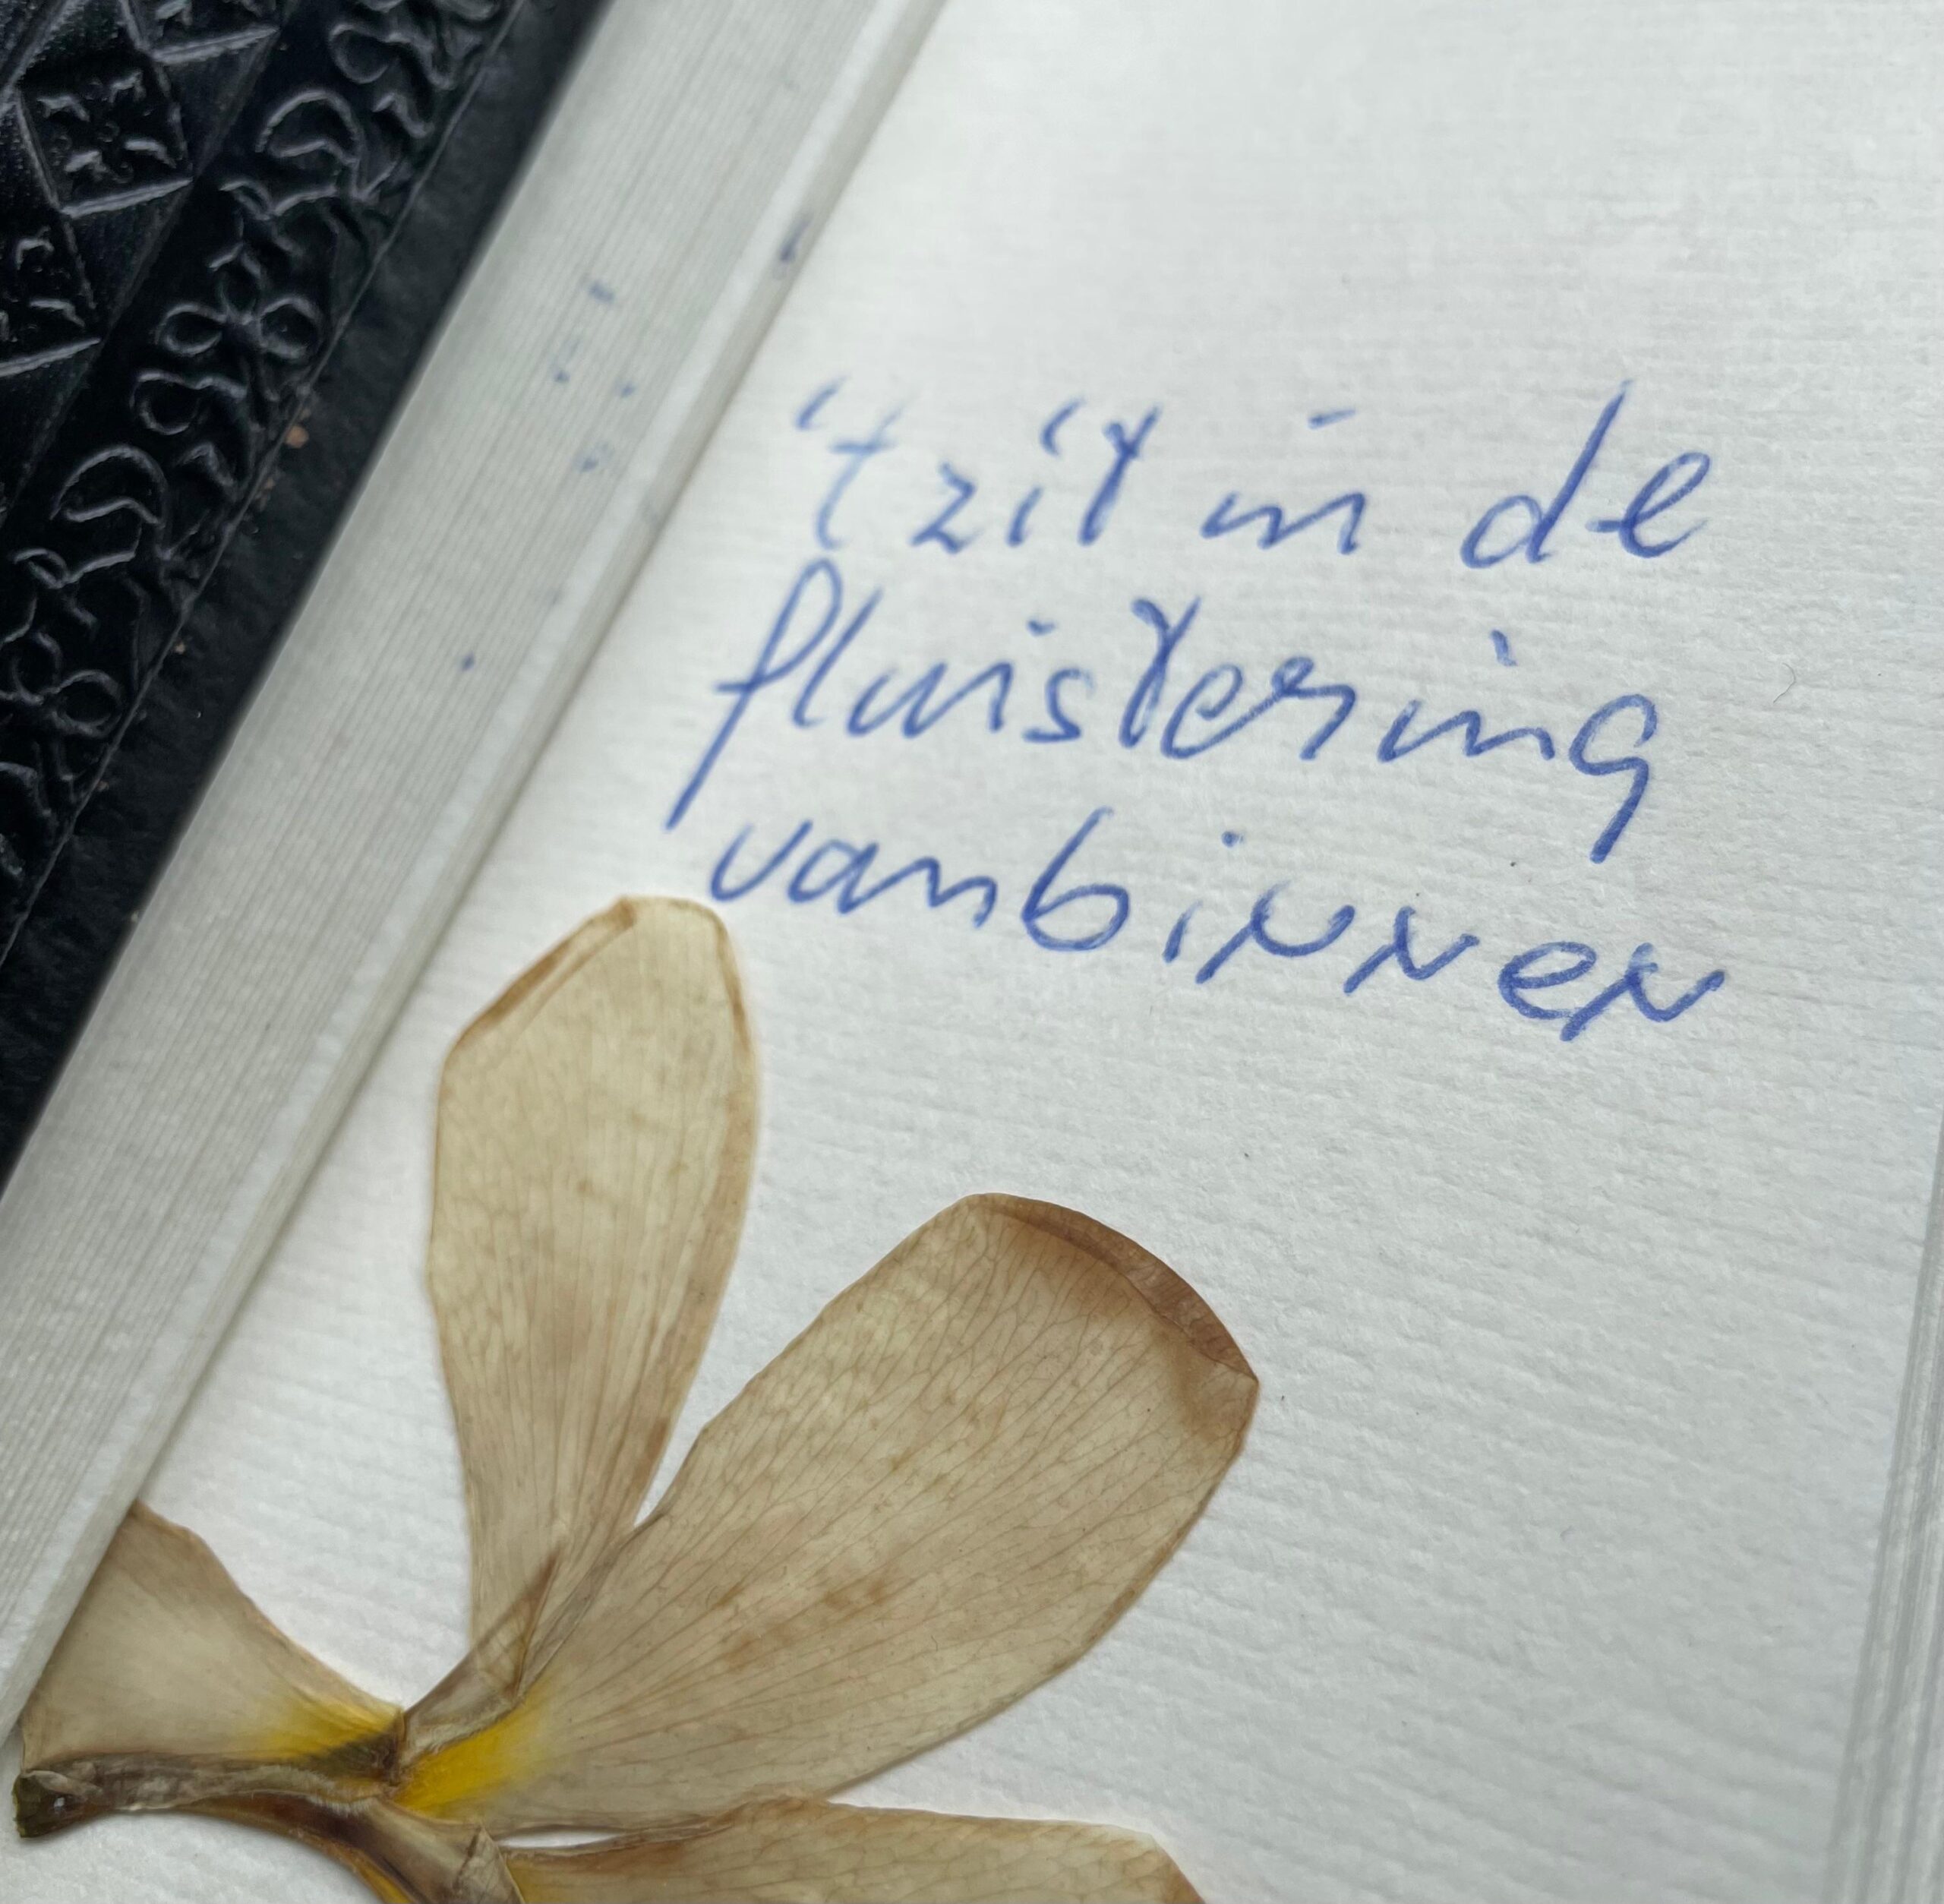 't zit in de
fluistering
vanbinnen